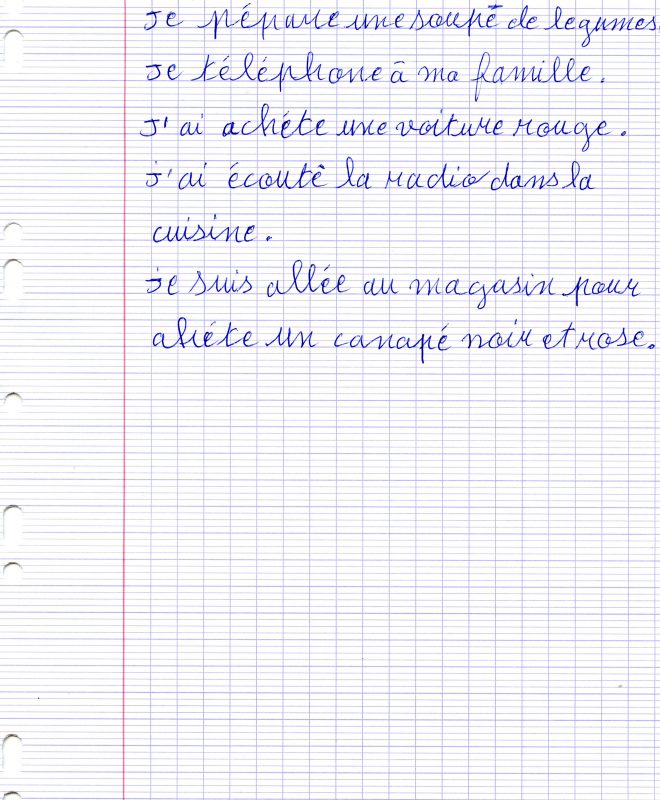 Je pépare une soupé de legumes.
Je téléphone à ma famille.
J'ai achéte une voiture rouge.
j'ai écouté la radio dans la
cuisine.
je suis allée au magasin pour
ahéte un canapé noir et rose.